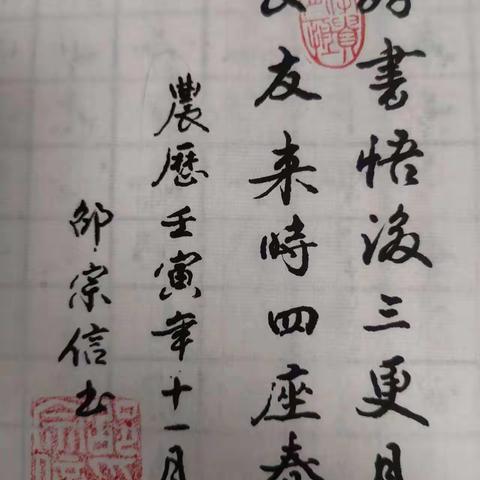 書悟後三更月
友来時四座春
農歷壬寅年十一月
邵宗信书